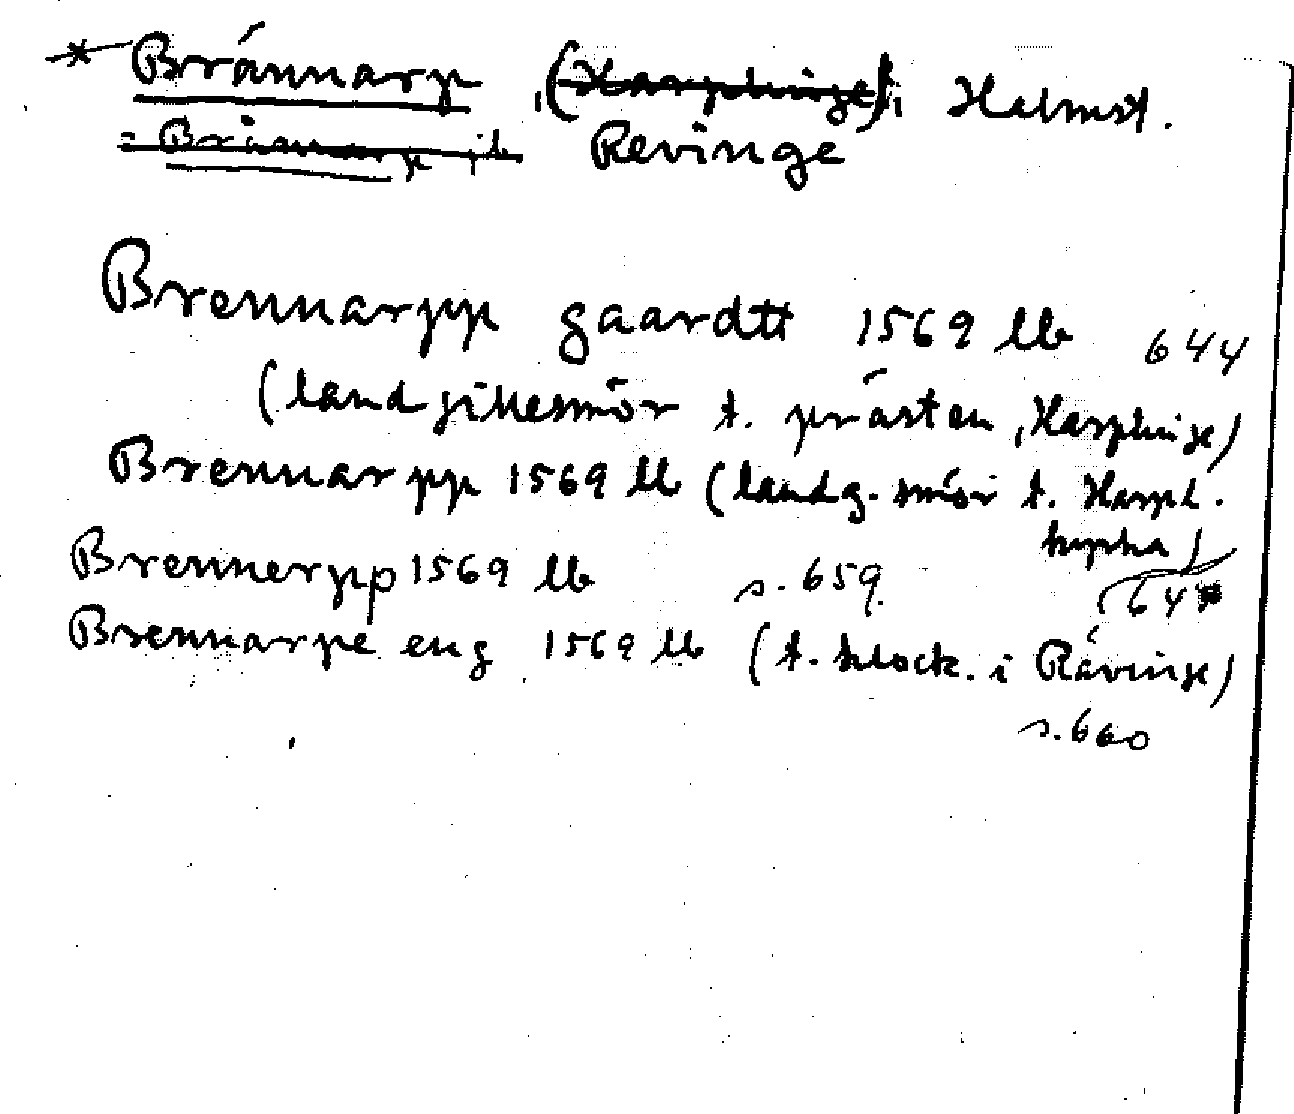 * Brännarp, (Harplinge), Halmst.
= Brännarp, jb Revinge
Brennarpp gaardtt 1569 lb 644
(landgillesmör t. prästen, Harplinge)
Brennarpp 1569 lb (landg. smör t. Harpl.
kyrka)
Brennerpp 1569 lb s. 659. (64
Brennarpe eng 1569 lb (t. klock. i Rävinge)
s. 660